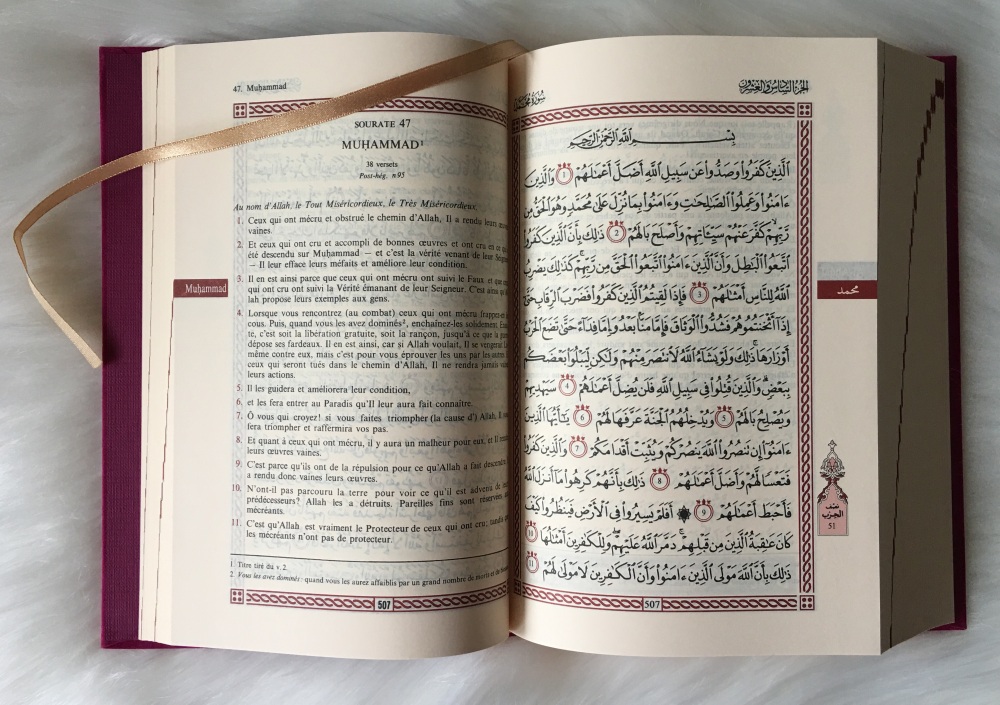 47. Muḥammad
SOURATE 47
MUḤAMMAD¹
38 versets
Post-hég. n°95
Au nom d'Allah, le Tout Miséricordieux, le Très Miséricordieux.
1. Ceux qui ont mécru et obstrué le chemin d'Allah, Il a rendu leurs
vaines.
2. Et ceux qui ont cru et accompli de bonnes œuvres et ont cru en ce
été descendu sur Muḥammad — et c'est la vérité venant de leur
— Il leur efface leurs méfaits et améliore leur condition.
3. Il en est ainsi parce que ceux qui ont mécru ont suivi le Faux et que
qui ont cru ont suivi la Vérité émanant de leur Seigneur. C'est ainsi
lah propose leurs exemples aux gens.
4. Lorsque vous rencontrez (au combat) ceux qui ont mécru frappez-en
cous. Puis, quand vous les avez dominés², enchaînez-les solidement.
te, c'est soit la libération gratuite, soit la rançon, jusqu'à ce que la
dépose ses fardeaux. Il en est ainsi, car si Allah voulait, Il se vengerait
même contre eux, mais c'est pour vous éprouver les uns par les autres.
ceux qui seront tués dans le chemin d'Allah, Il ne rendra jamais
leurs actions.
5. Il les guidera et améliorera leur condition,
6. et les fera entrer au Paradis qu'Il leur aura fait connaître.
7. Ô vous qui croyez! si vous faites triompher (la cause d') Allah, Il
fera triompher et raffermira vos pas.
8. Et quant à ceux qui ont mécru, il y aura un malheur pour eux, et Il
leurs œuvres vaines.
9. C'est parce qu'ils ont de la répulsion pour ce qu'Allah a fait descendre
a rendu donc vaines leurs œuvres.
10. N'ont-il pas parcouru la terre pour voir ce qu'il est advenu de
prédécesseurs? Allah les a détruits. Pareilles fins sont réservées
mécréants.
11. C'est qu'Allah est vraiment le Protecteur de ceux qui ont cru; tandis
les mécréants n'ont pas de protecteur.
1 Titre tiré du v.2.
2 Vous les avez dominés: quand vous les aurez affaiblis par un grand nombre de morts et de
507
Muḥammad
الجزء السادس والعشرون
بِسْمِ اللَّهِ الرَّحْمَٰنِ الرَّحِيمِ
ٱلَّذِينَ كَفَرُوا۟ وَصَدُّوا۟ عَن سَبِيلِ ٱللَّهِ أَضَلَّ أَعْمَٰلَهُمْ ١ وَٱلَّذِينَ
ءَامَنُوا۟ وَعَمِلُوا۟ ٱلصَّٰلِحَٰتِ وَءَامَنُوا۟ بِمَا نُزِّلَ عَلَىٰ مُحَمَّدٍ وَهُوَ ٱلْحَقُّ مِن
رَّبِّهِمْ كَفَّرَ عَنْهُمْ سَيِّـَٔاتِهِمْ وَأَصْلَحَ بَالَهُمْ ٢ ذَٰلِكَ بِأَنَّ ٱلَّذِينَ كَفَرُوا۟
ٱتَّبَعُوا۟ ٱلْبَٰطِلَ وَأَنَّ ٱلَّذِينَ ءَامَنُوا۟ ٱتَّبَعُوا۟ ٱلْحَقَّ مِن رَّبِّهِمْ كَذَٰلِكَ يَضْرِبُ
ٱللَّهُ لِلنَّاسِ أَمْثَٰلَهُمْ ٣ فَإِذَا لَقِيتُمُ ٱلَّذِينَ كَفَرُوا۟ فَضَرْبَ ٱلرِّقَابِ حَتَّىٰ
إِذَآ أَثْخَنتُمُوهُمْ فَشُدُّوا۟ ٱلْوَثَاقَ فَإِمَّا مَنًّۢا بَعْدُ وَإِمَّا فِدَآءً حَتَّىٰ تَضَعَ ٱلْحَرْبُ
أَوْزَارَهَا ذَٰلِكَ وَلَوْ يَشَآءُ ٱللَّهُ لَٱنتَصَرَ مِنْهُمْ وَلَٰكِن لِّيَبْلُوَا۟ بَعْضَكُم
بِبَعْضٍ وَٱلَّذِينَ قُتِلُوا۟ فِى سَبِيلِ ٱللَّهِ فَلَن يُضِلَّ أَعْمَٰلَهُمْ ٤ سَيَهْدِيهِمْ
وَيُصْلِحُ بَالَهُمْ ٥ وَيُدْخِلُهُمُ ٱلْجَنَّةَ عَرَّفَهَا لَهُمْ ٦ يَٰٓأَيُّهَا ٱلَّذِينَ
ءَامَنُوٓا۟ إِن تَنصُرُوا۟ ٱللَّهَ يَنصُرْكُمْ وَيُثَبِّتْ أَقْدَامَكُمْ ٧ وَٱلَّذِينَ كَفَرُوا۟
فَتَعْسًا لَّهُمْ وَأَضَلَّ أَعْمَٰلَهُمْ ٨ ذَٰلِكَ بِأَنَّهُمْ كَرِهُوا۟ مَآ أَنزَلَ ٱللَّهُ
فَأَحْبَطَ أَعْمَٰلَهُمْ ٩ أَفَلَمْ يَسِيرُوا۟ فِى ٱلْأَرْضِ فَيَنظُرُوا۟ كَيْفَ
كَانَ عَٰقِبَةُ ٱلَّذِينَ مِن قَبْلِهِمْ دَمَّرَ ٱللَّهُ عَلَيْهِمْ وَلِلْكَٰفِرِينَ أَمْثَٰلُهَا ١٠
ذَٰلِكَ بِأَنَّ ٱللَّهَ مَوْلَى ٱلَّذِينَ ءَامَنُوا۟ وَأَنَّ ٱلْكَٰفِرِينَ لَا مَوْلَىٰ لَهُمْ ١١
507
محمد
نصف
الحزب
51